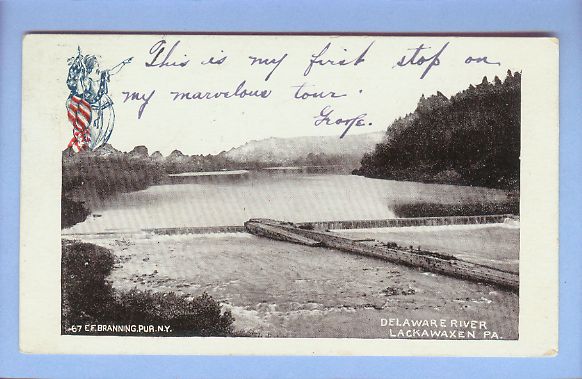 This is my first stop on
my marvelous tour.
67 E.F. BRANNING. PUB. N.Y.
DELAWARE RIVER
LACKAWAXEN PA.